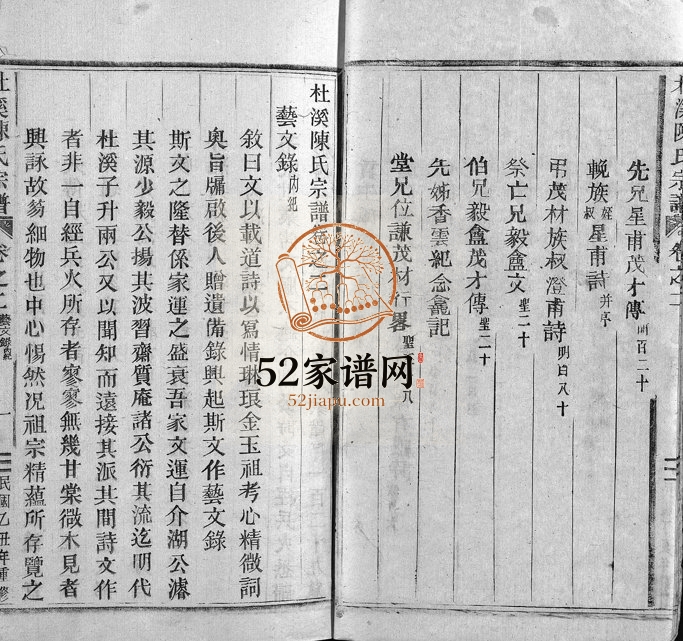 杜溪陳氏宗譜
先兄星甫茂才傳 明百二十
輓族叔經星甫詩 并序
弔茂材族叔澄甫詩 明日八十
祭亡兄毅盦文 聖二十
伯兄毅盦茂才傳 聖二十
先姊香雲紀念龕記
堂兄位謙茂材行畧 聖
52家谱网
52jiapu.com
杜溪陳氏宗譜卷之二
藝文錄 內紀
敘曰文以載道詩以寫情琳琅金玉祖考心精微詞
奥旨牖啟後人贈遺備錄興起斯文作藝文錄
斯文之隆替係家運之盛衰吾家文運自介湖公濬
其源少毅公揚其波習齋質庵諸公衍其流迄明代
杜溪子升兩公又以聞知而遠接其派其間詩文作
者非一自經兵火所存者寥寥無幾甘棠微木見者
興詠故蒭細物也中心惕然况祖宗精蘊所存覽之
杜溪陳氏宗譜 卷之二 藝文錄內紀 一 民國乙丑年重修